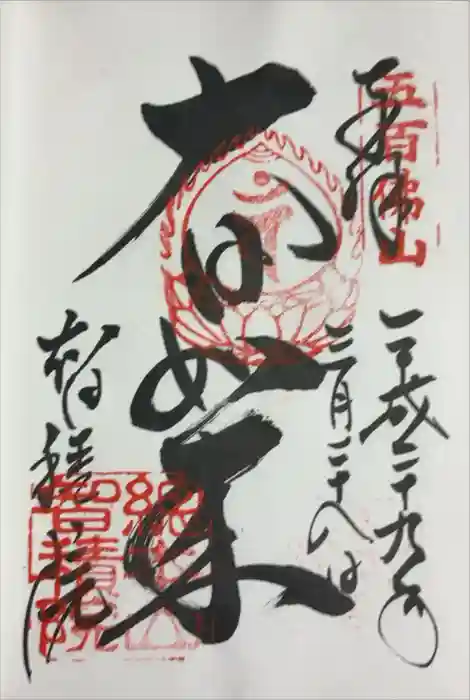 五百佛山
奉拝
平成二十九年
三月二十八日
大日如来
智積院
總本山
智積院